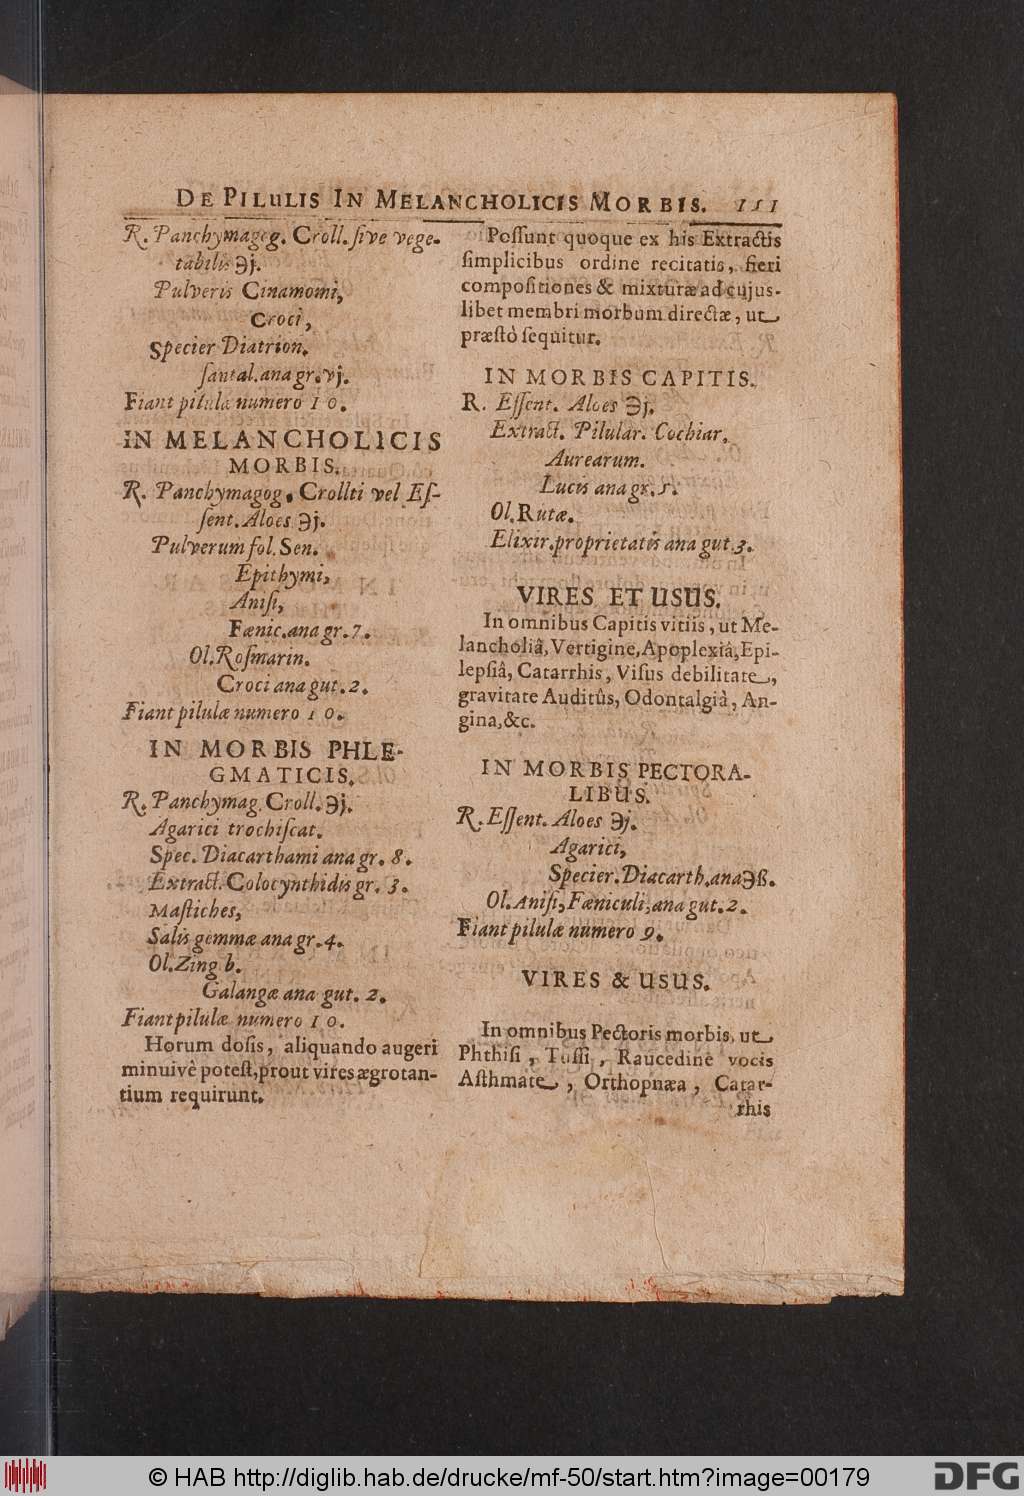 DE PILULIS IN MELANCHOLICIS MORBIS. 111
R. Panchymagog. Croll. ſive vege-
tabilis ℈j.
Pulveris Cinamomi,
Croci,
Specier Diatrion.
ſantal. ana gr. vj.
Fiant pilulæ numero 10.
IN MELANCHOLICIS
MORBIS.
R. Panchymagog. Crollti vel Eſ-
ſent. Aloes ℈j.
Pulverum fol. Sen.
Epithymi,
Aniſi,
Fænic. ana gr. 7.
Ol. Roſmarin.
Croci ana gut. 2.
Fiant pilulæ numero 10.
IN MORBIS PHLE-
GMATICIS.
R. Panchymag. Croll. ℈j.
Agarici trochiſcat.
Spec. Diacarthami ana gr. 8.
Extract. Colocynthidis gr. 3.
Maſtiches,
Salis gemmæ ana gr. 4.
Ol. Zing b.
Galangæ ana gut. 2.
Fiant pilulæ numero 10.
Horum doſis, aliquando augeri
minuivè poteſt, prout vires ægrotan-
tium requirunt.
Poſſunt quoque ex his Extractis
ſimplicibus ordine recitatis, fieri
compoſitiones & mixturæ ad cujus-
libet membri morbum directæ, ut
præſtò ſequitur.
IN MORBIS CAPITIS.
R. Eſſent. Aloes ℈j.
Extract. Pilular. Cochiar,
Aurearum.
Lucis ana gr. 5.
Ol. Rutæ.
Elixir. proprietatis ana gut. 3.
VIRES ET USUS.
In omnibus Capitis vitiis, ut Me-
lancholiâ, Vertigine, Apoplexiâ, Epi-
lepſiâ, Catarrhis, Viſus debilitate,
gravitate Auditûs, Odontalgiâ, An-
gina, &c.
IN MORBIS PECTORA-
LIBUS.
R. Eſſent. Aloes ℈j.
Agarici,
Specier. Diacarth. ana ℈ß.
Ol. Aniſi, Fæniculi, ana gut. 2.
Fiant pilulæ numero 9.
VIRES & USUS.
In omnibus Pectoris morbis, ut
Phthiſi, Tuſſi, Raucedinè vocis
Aſthmate, Orthopnæa, Catar-
rhis
© HAB http://diglib.hab.de/drucke/mf-50/start.htm?image=00179
DFG